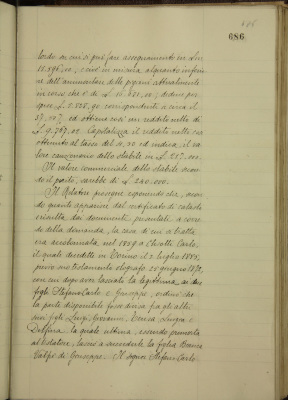 686
lordo su cui si può fare assegnamento in Lire
15.596,00, e cioè in misura alquanto inferio
re dell'ammontare delle pigioni attualmente
in corso che è di L.
que L. 5.828,90 corrispondenti a circa il
37,00% ed ottiene così un reddito netto di
L. 9.767,02. Capitalizza il reddito netto così
ottenuto al tasso del e indica il va
lore dello stabile in L.
Il valore commerciale dello stabile secon
do il perito, sarebbe di L. 240.000.
Il Relatore prosegue esponendo che, secon
do quanto appare dal certificato di catasto
e risulta dai documenti presentati a corre
do della domanda, la casa di cui si tratta
era accatastata nel 1859 a Carlo,
il quale decedette in Torino il 2 luglio
previo suo testamento olografo 25 giugno
con cui dopo aver lasciato la legittima ai due
figli Stefano Carlo e Giuseppe, ordinò che
la parte disponibile fosse divisa fra gli altri
suoi figli Luigi, Giovanni, Enrica, Luigia e
Delfina la quale ultima, essendo premorta
al testatore, lasciò a succederle la figlia Bianca
di Giuseppe. Il signor Stefano Carlo